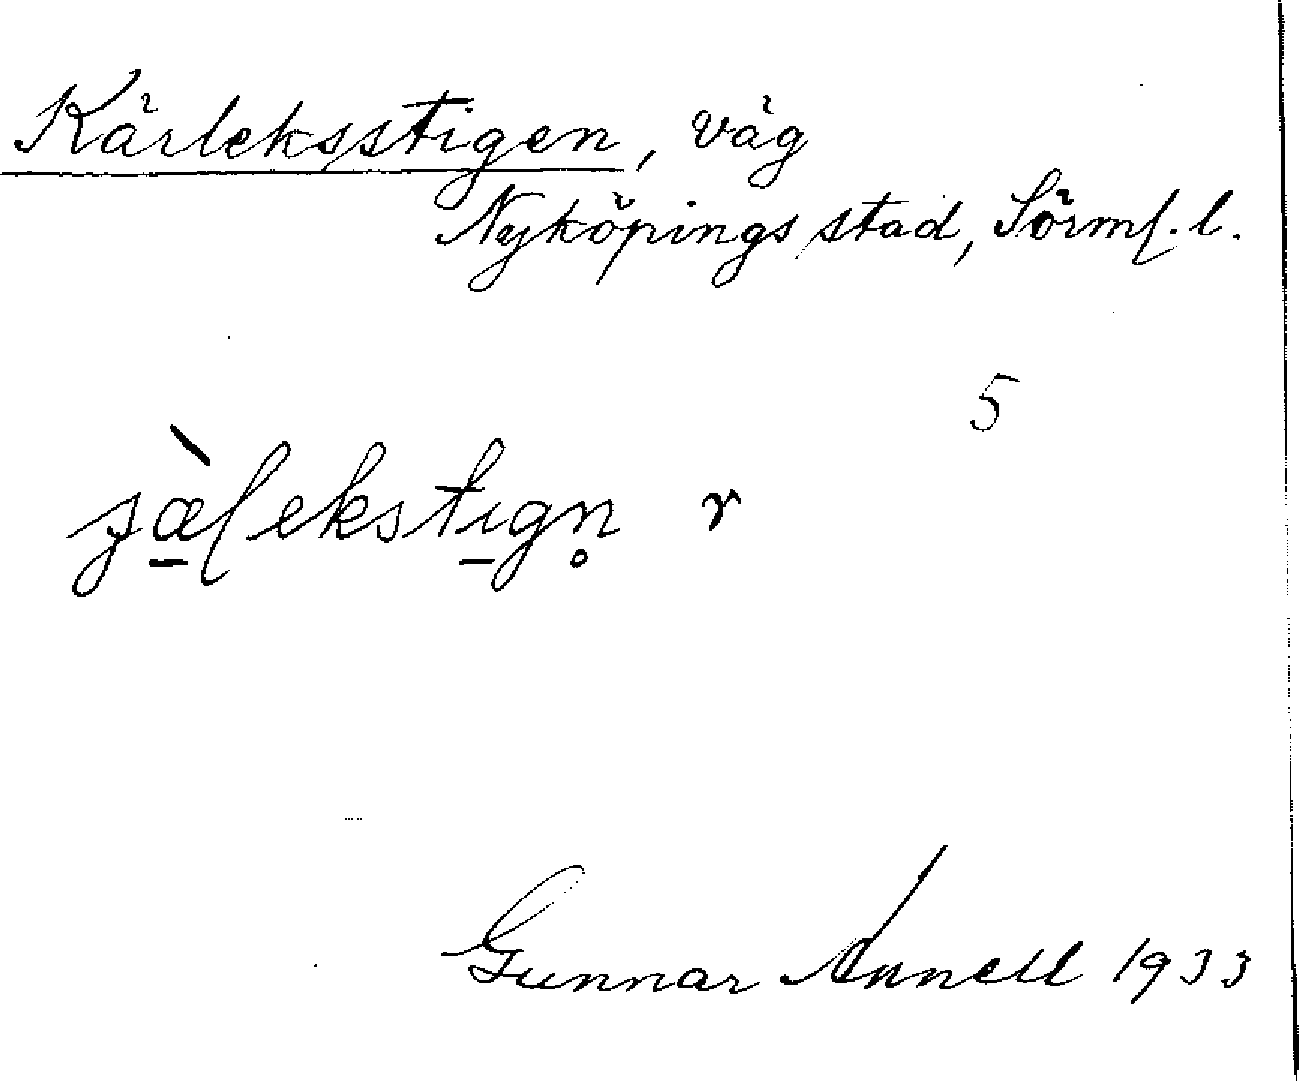 Kärleksstigen, väg
Nyköpings stad, Sörml. l.
5
Gunnar Annell 1933